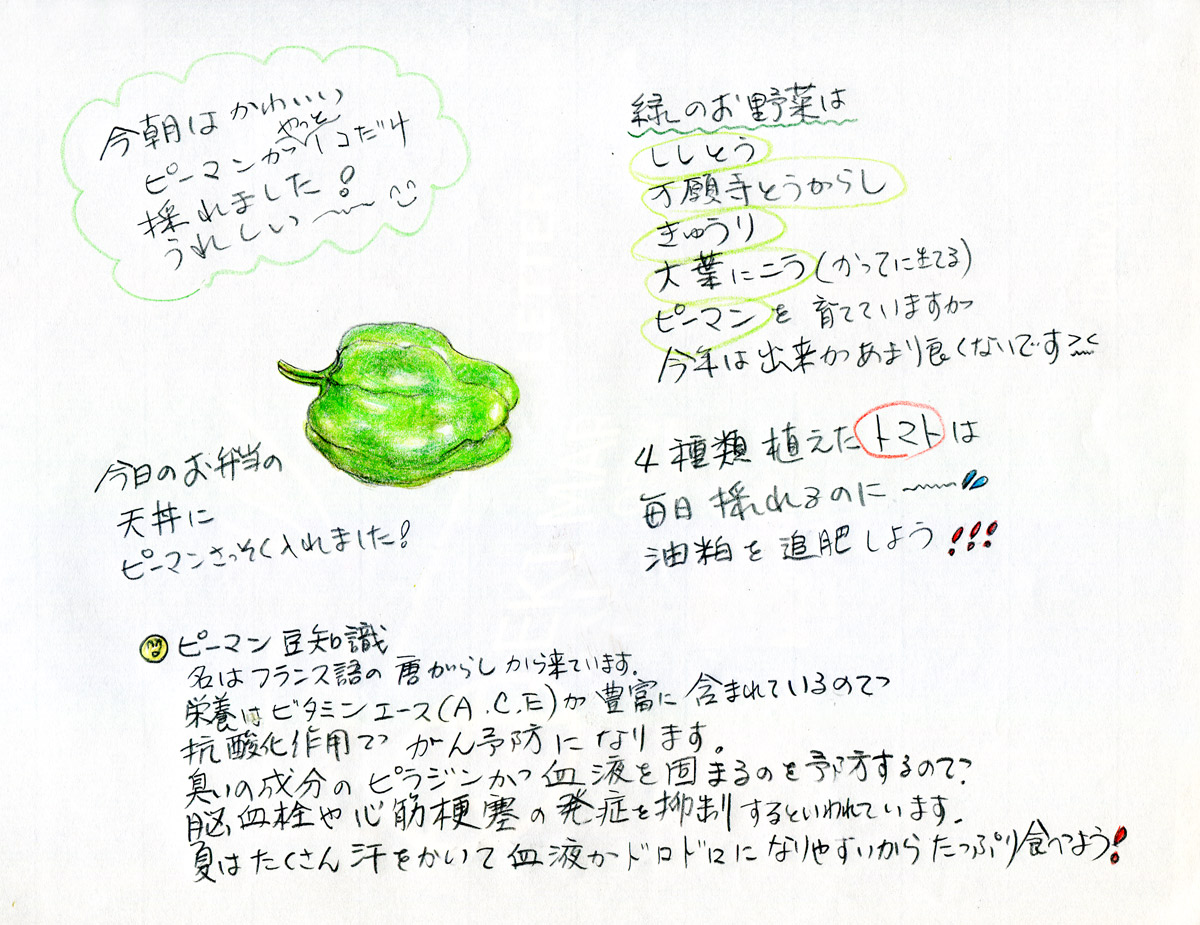 今朝はかわいい
ピーマンがやっと1コだけ
採れました!
うれしい〜
緑のお野菜は
ししとう
万願寺とうがらし
きゅうり
大葉にニラ(かってに生てる)
ピーマンを育てていますが
今年は出来があまり良くないです
4種類植えたトマトは
毎日採れるのに〜
油粕を追肥しよう!!!
今日のお弁当の
天丼に
ピーマンさっそく入れました!
ピーマン豆知識
名はフランス語の唐がらしから来ています.
栄養はビタミンエース(A.C.E)が豊富に含まれているので
抗酸化作用でがん予防になります。
臭いの成分のピラジンが血液を固まるのを予防するので
脳血栓や心筋梗塞の発症を抑制するといわれています.
夏はたくさん汗をかいて血液がドロドロになりやすいからたっぷり食べよう!